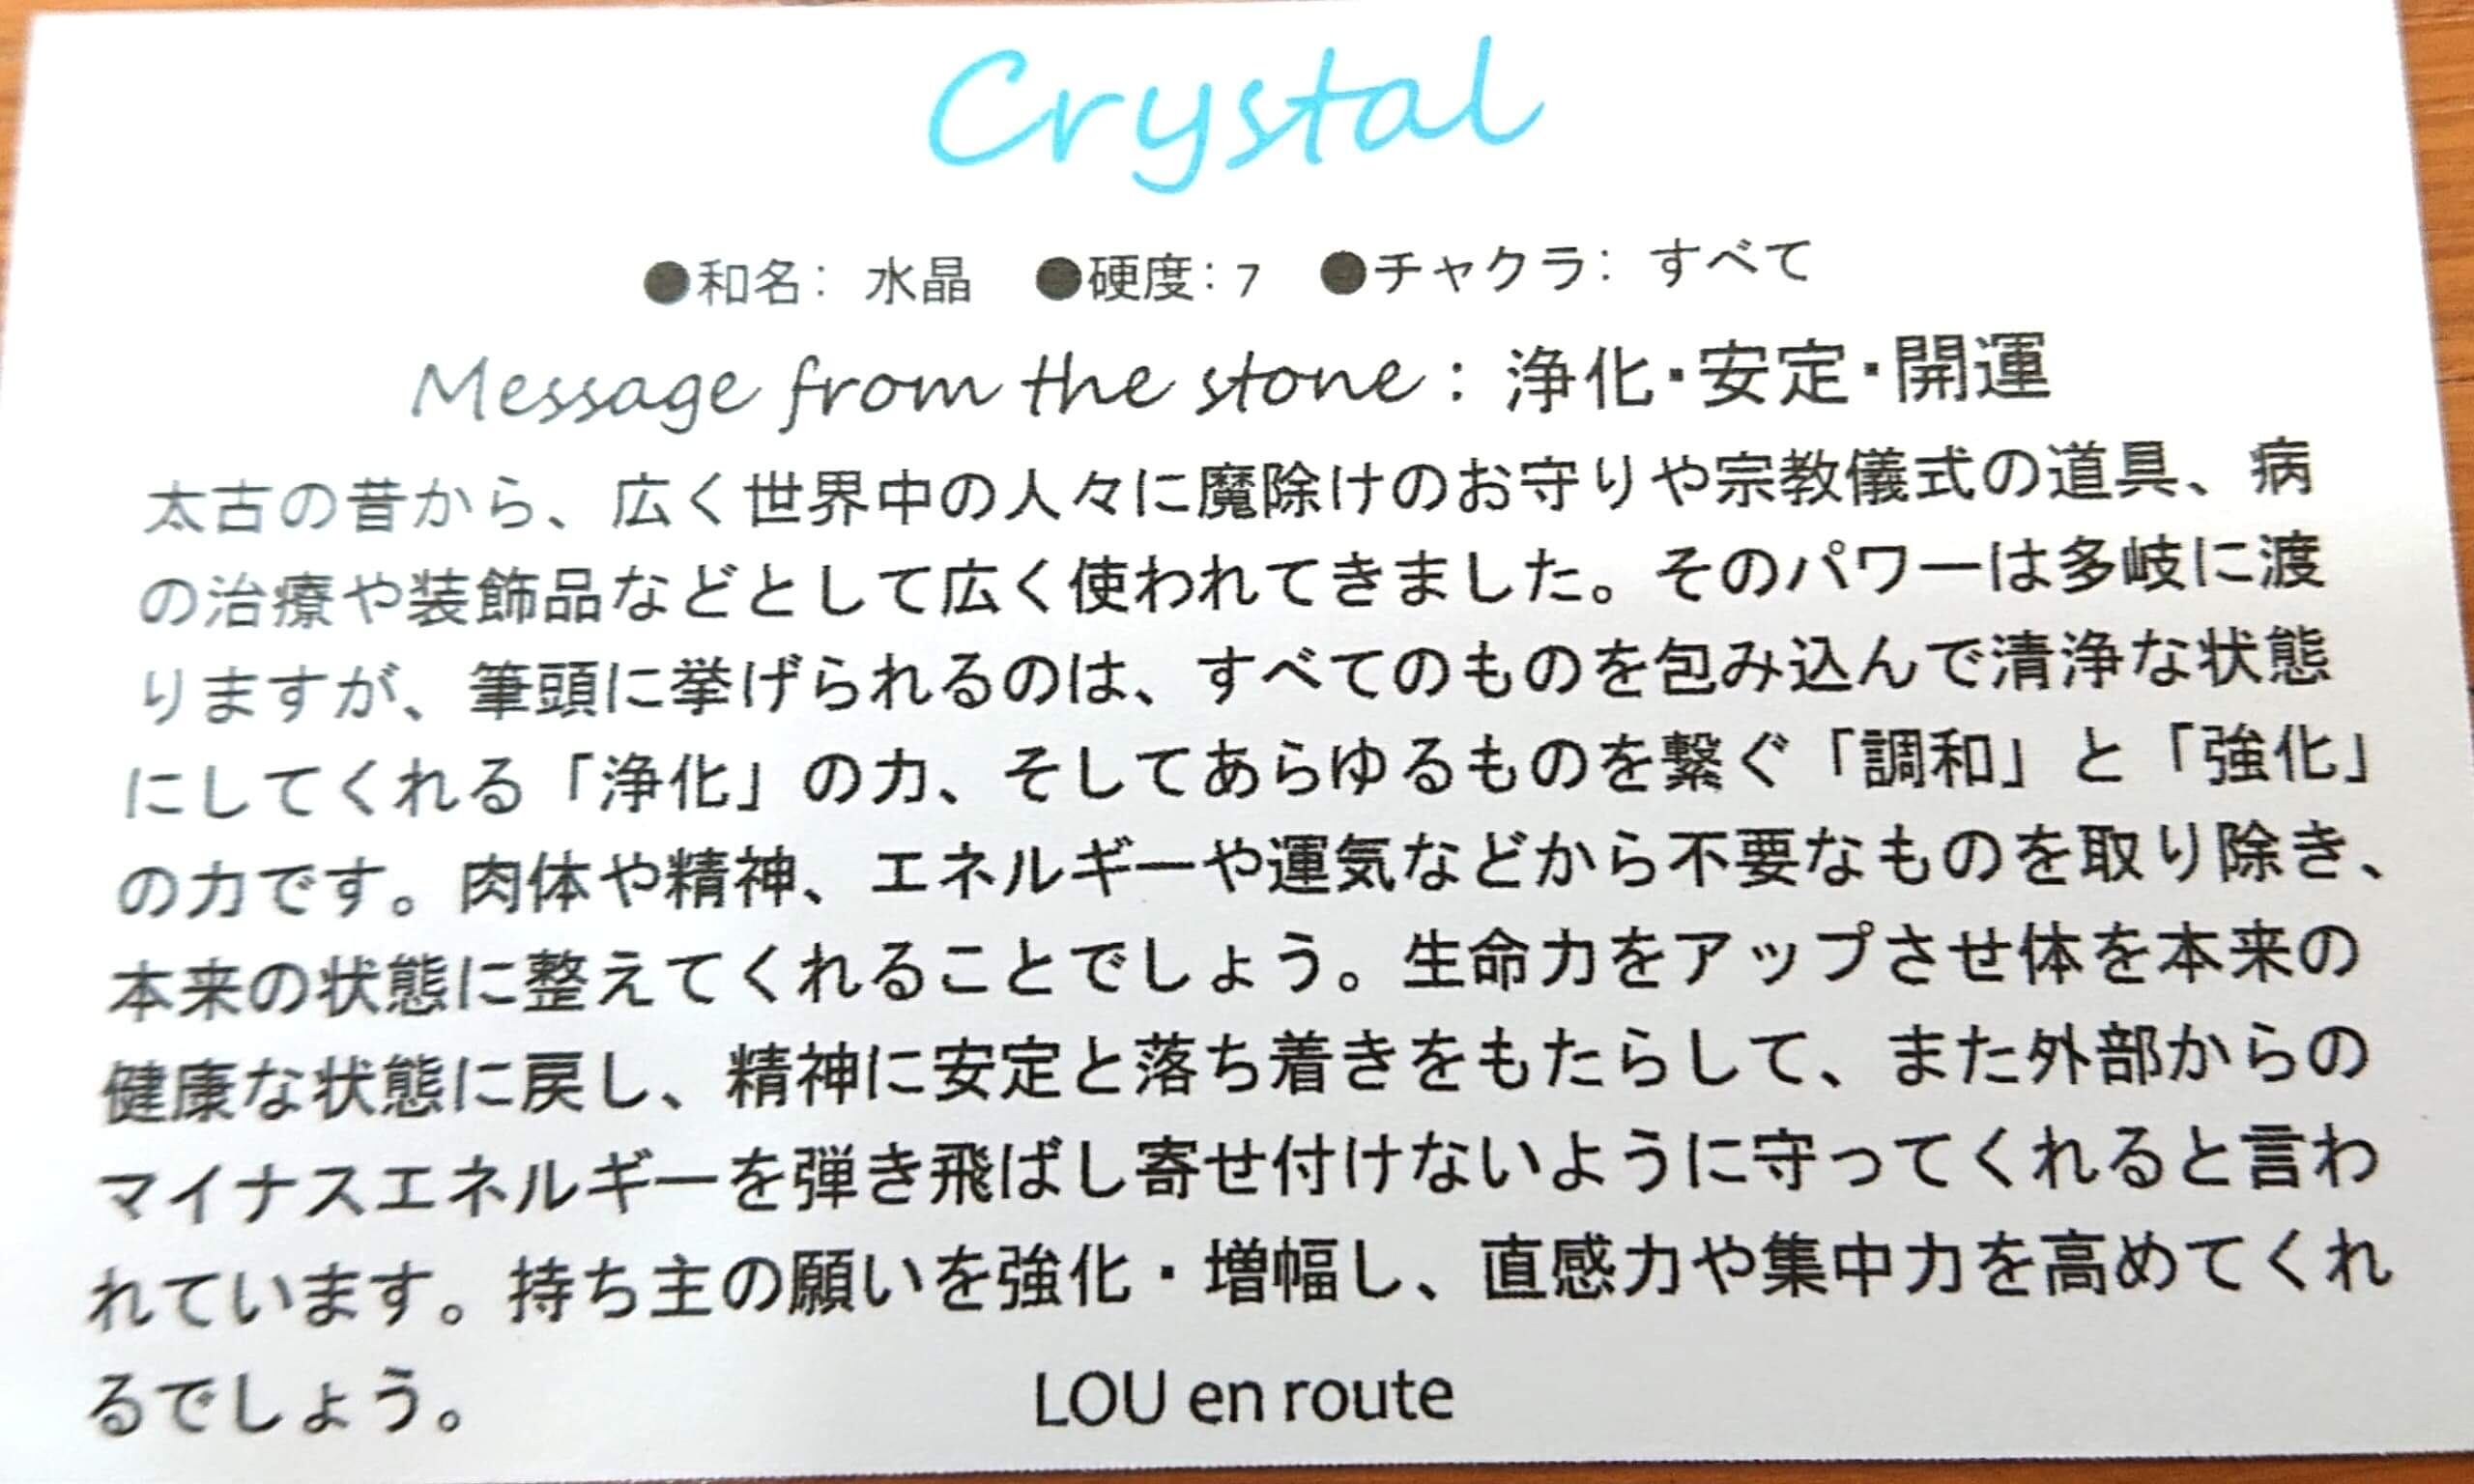 Crystal
●和名: 水晶 ●硬度: 7 ●チャクラ: すべて
Message from the stone : 浄化・安定・開運
太古の昔から、広く世界中の人々に魔除けのお守りや宗教儀式の道具、病
の治療や装飾品などとして広く使われてきました。そのパワーは多岐に渡
りますが、筆頭に挙げられるのは、すべてのものを包み込んで清浄な状態
にしてくれる「浄化」の力、そしてあらゆるものを繋ぐ「調和」と「強化」
の力です。肉体や精神、エネルギーや運気などから不要なものを取り除き、
本来の状態に整えてくれることでしょう。生命力をアップさせ体を本来の
健康な状態に戻し、精神に安定と落ち着きをもたらして、また外部からの
マイナスエネルギーを弾き飛ばし寄せ付けないように守ってくれると言わ
れています。持ち主の願いを強化・増幅し、直感力や集中力を高めてくれ
るでしょう。 LOU en route